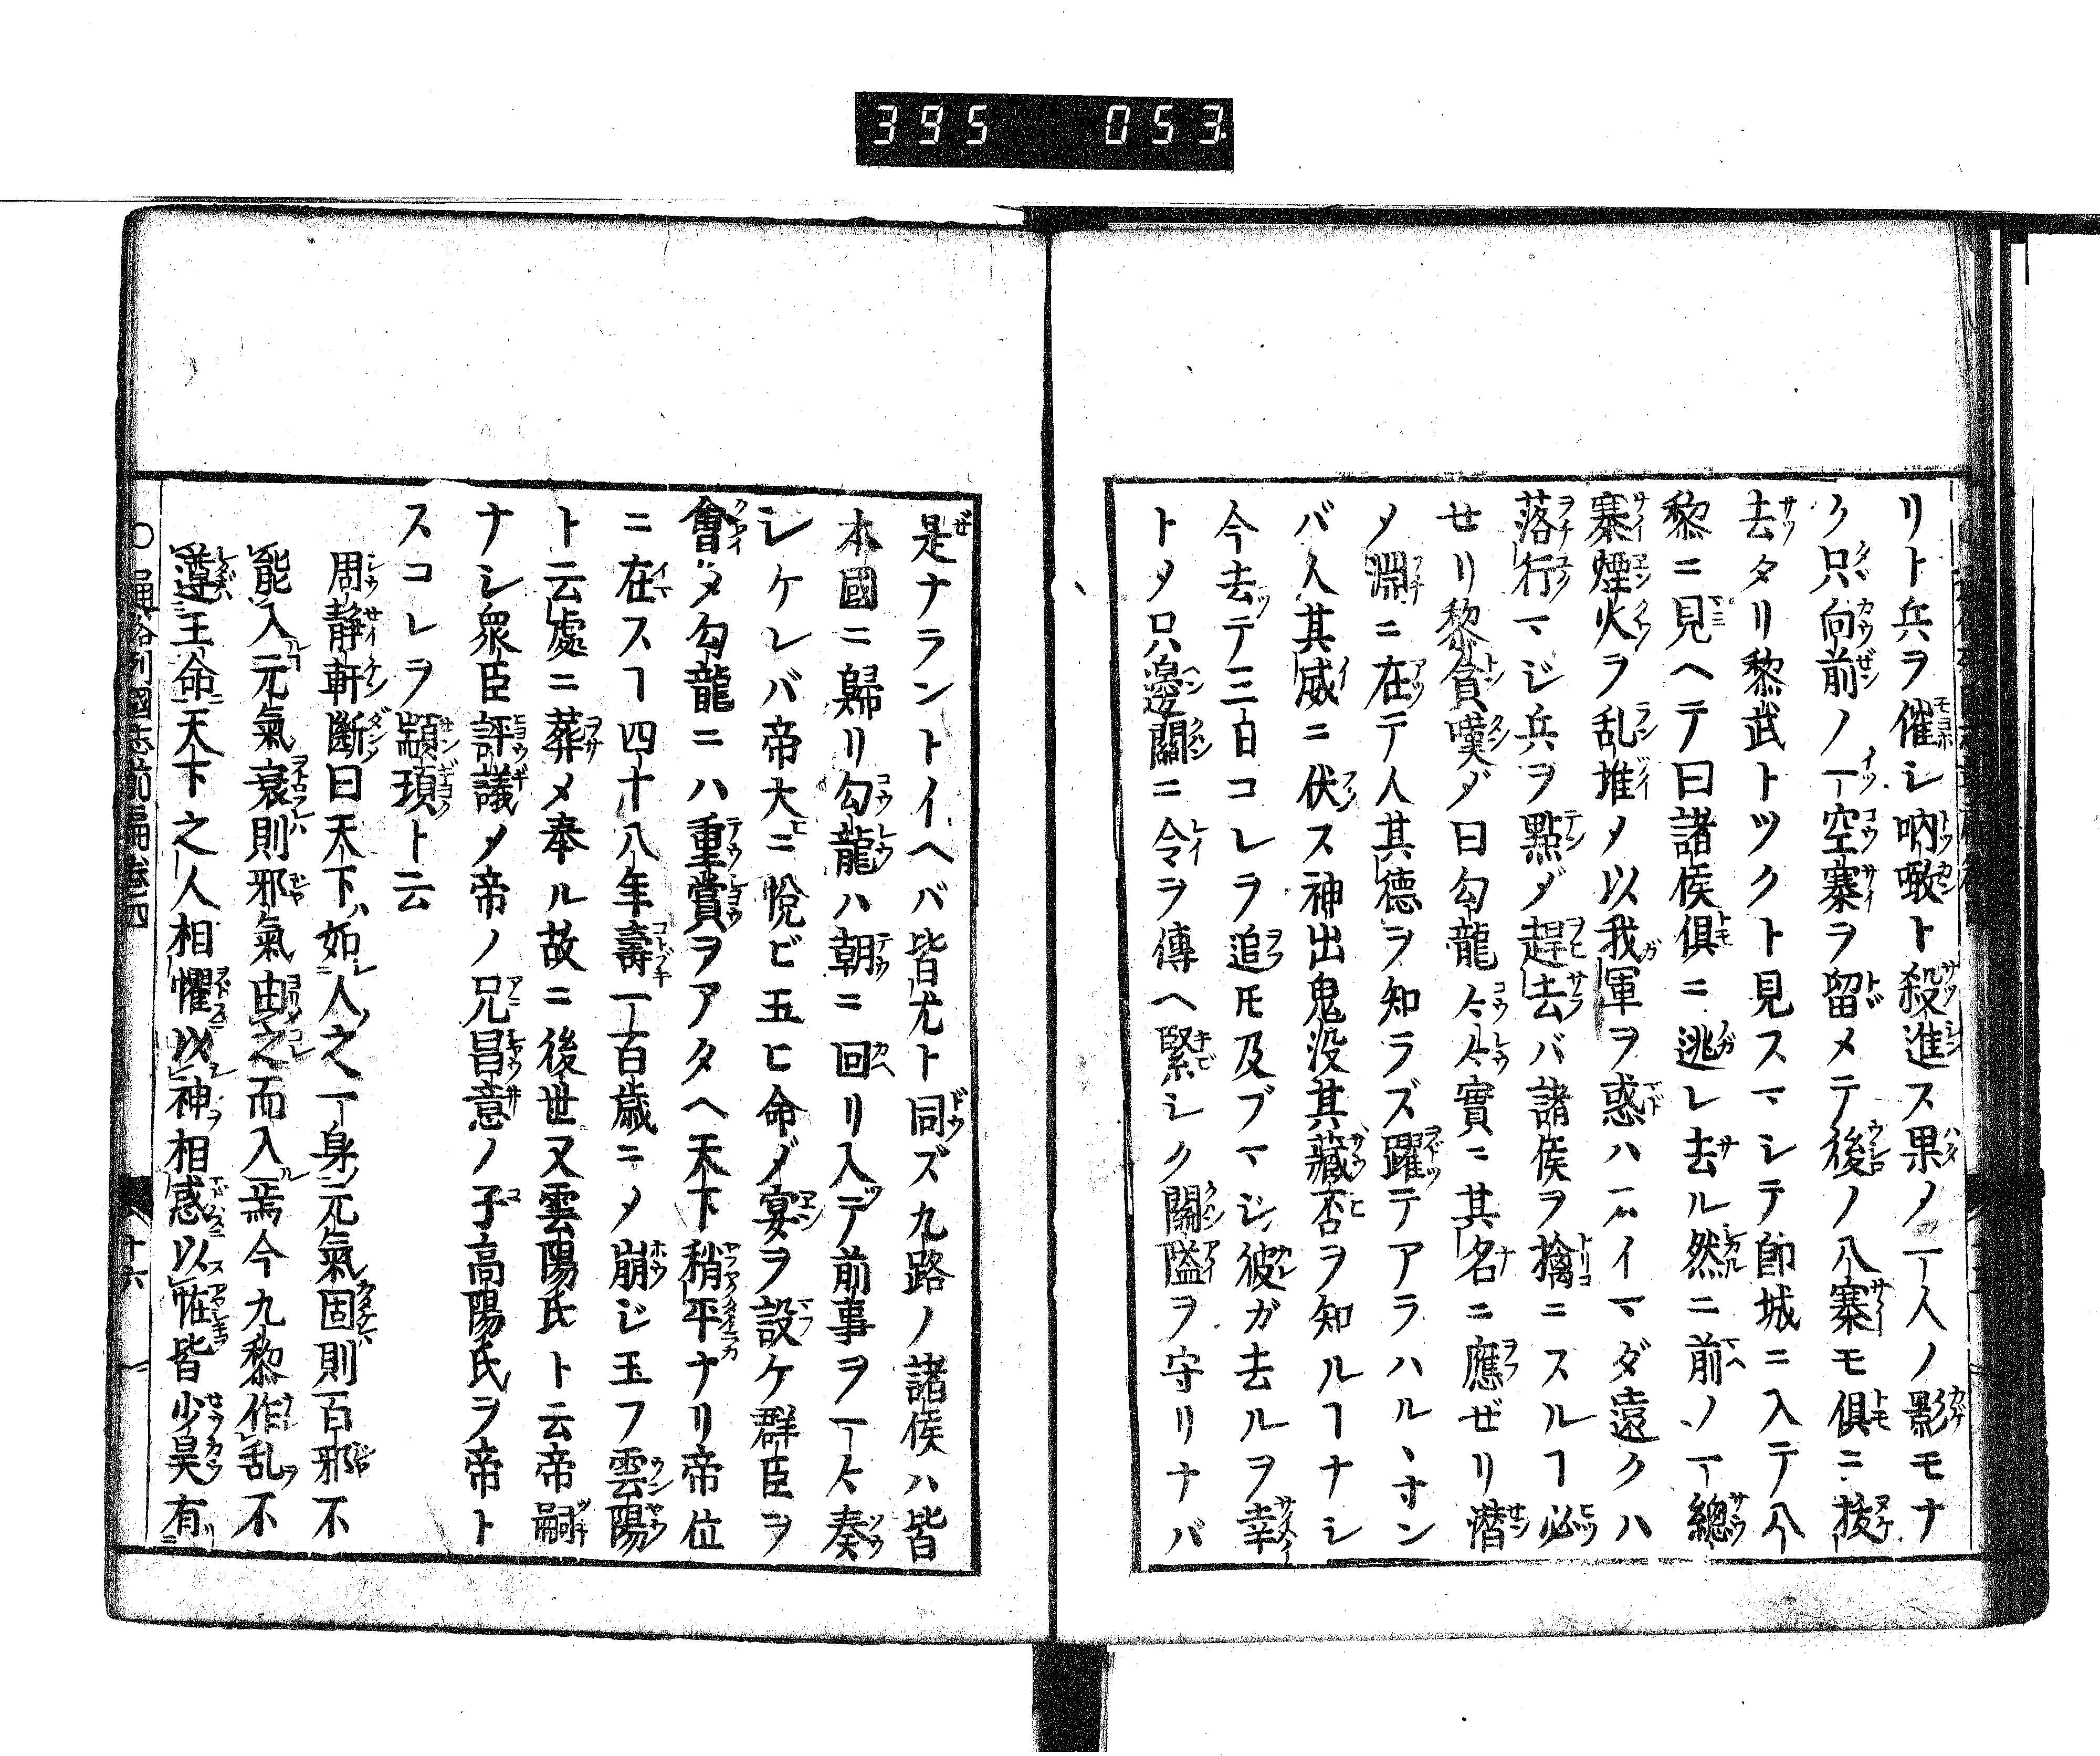 395 053
リト兵ヲ催シ吶噉ト殺進ス果ノ一人ノ影モナ
ク只向前ノ一空寨ヲ留メテ後ノ八寨モ俱ニ拔
去タリ黎武トツクト見スマシテ卽城ニ入テ八
黎ニ見ヘテ曰諸侯俱ニ逃レ去ル然ニ前ノ一總
寨煙火ヲ乱堆メ以我軍ヲ惑ハ一ハイマダ遠クハ
落行マジ兵ヲ點ダ趕去バ諸侯ヲ擒ニスルヿ必
せリ黎貪嘆ダ曰勾龍〻〻實ニ其名ニ應ぜリ潜
メ淵ニ在テ人其德ヲ知ラズ躍テアラハルヽ寸ン
バ人其威ニ伏ス神出鬼没其藏否ヲ知ルヿナシ
今去テ三日コレラ追ヒ及ブマジ彼ガ去ルヲ幸
トメ只邊關ニ令ヲ傳ヘ緊シク關隘ヲ守リナバ
是ナラントイヘバ皆尤ト同ズ九路ノ諸侯ハ皆
本國ニ歸リ勾龍ハ朝ニ回リ入デ前事ヲ一〻奏
シケレバ帝大ニ悅ビ五ヒ命ダ宴ヲ設ケ群臣ヲ
會メ勾龍ニハ重賞ヲアタヘ天下稍平ナリ帝位
ニ在スヿ四十八年壽一百歲ニメ崩ジ玉フ雲陽
ト云處ニ葬メ奉ル故ニ後世又雲陽氏ト云帝嗣
ナシ衆臣評議メ帝ノ兄昌意ノ子高陽氏ヲ帝ト
スコレヲ顓頊ト云
周静軒斷曰天下ハ如人之一身元氣固則百邪不
能入元氣衰則邪氣由之而入焉今九黎作乱不
遵王命天下之人相懼以神相惑以怪皆少昊有
通俗列國志前編卷四 十六